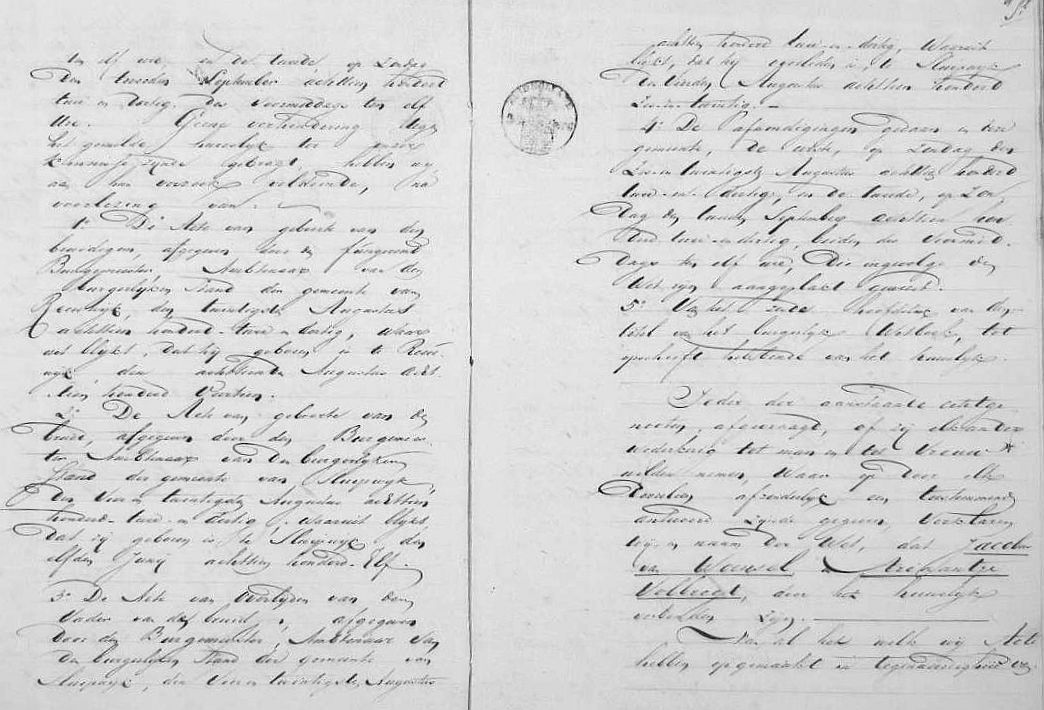 ten elf ure, en de tweede op Zondag
den tweeden September achttien honderd
twee en dertig, des voormiddags ten elf
ure. Geene verhindering tegen
het gemelde huwelijk ter onzer
kennisse zijnde gebragt, hebben wij
aan hun verzoek voldoende, na
voorlezing van:
1o De Acte van geboorte van den
bruidegom, afgegeven door den fungerend
Burgemeester, Ambtenaar van den
burgerlijken Stand der gemeente van
Reeuwijk, den twintigsten Augustus
achttien honderd twee en dertig, waar
uit blijkt, dat hij geboren is te Reeu-
wijk den achttienden Augustus acht-
tien honderd Veertien.
2o De Acte van geboorte van de
bruid, afgegeven door den Burgemees-
ter Ambtenaar van den burgerlijken
Stand der gemeente van Sluipwijk,
den vier en twintigsten Augustus achttien
honderd twee en dertig, waaruit blijkt,
dat zij geboren is te Sluipwijk, den
elfden Junij achttien honderd Elf.
3o De Acte van Overlijden van den
Vader van de bruid, afgegeven
door den Burgemeester, Ambtenaar van
den burgerlijken Stand der gemeente van
Sluipwijk, den Vier en twintigsten Augustus
achttien honderd twee en dertig, Waaruit
blijkt, dat hij overleden is, te Sluipwijk
den Augustus achttien honderd
Zes en twintig.
4o De afkondigingen gedaan in deze
gemeente, de eerste, op Zondag den
Zes en twintigsten Augustus achttien honderd
twee en dertig, en de tweede, op Zon-
dag den tweeden September achttien hon-
derd twee en dertig, beiden des Voormid-
dags ten elf ure, Die ingevolge de
Wet zijn aangeplakt geweest.
5o Van het zesde hoofdstuk van den
titel van het burgerlijk Wetboek, tot
opschrift hebbende van het huwelijk.
Ieder der aanstaande echtge-
nooten, afgevraagd, of zij elkander
wederkeerig tot man en tot Vrouw
wilden nemen, Waar op door elk
derzelven afzonderlijk een toestemmend
antwoord zijnde gegeven, Verklaren
wij in naam der Wet, dat Jacobus
van Woensel en
, door het huwelijk
verbonden zijn.
Van al het welk wij Acte
hebben opgemaakt in tegenwoordigheid van